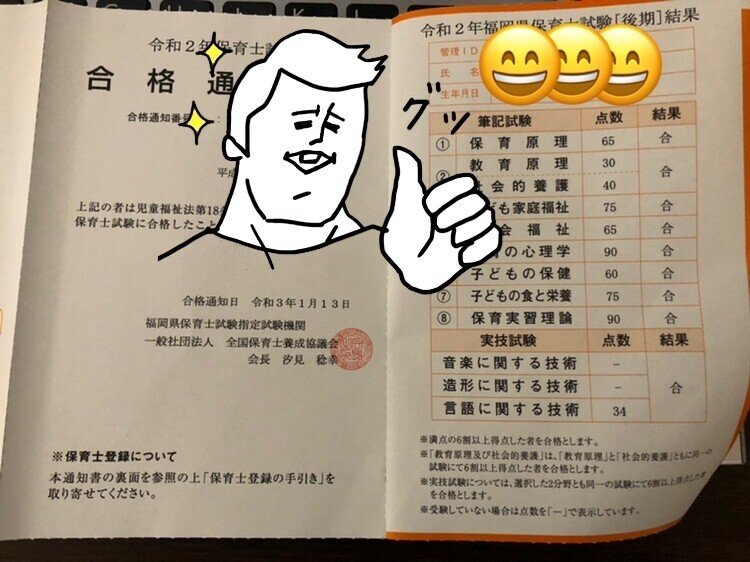 令和2年保育士試
合格通
合格通知番号
平成
上記の者は児童福祉法第18
保育士試験に合格したこと
合格通知日 令和3年1月13日
福岡県保育士試験指定試験機関
一般社団法人 全国保育士養成協議会
会長 汐見 稔幸
※保育士登録について
本通知書の裏面を参照の上「保育士登録の手引き」を
取り寄せてください。
グッ
令和2年福岡県保育士試験[後期]結果
管理ID
氏 名
生年月日
筆記試験 点数 結果
① 保育原理 65 合
② 教育原理 30 合
社会的養護 40
ども家庭福祉 75 合
会福祉 65 合
の心理学 90 合
子どもの保健 60 合
⑦ 子どもの食と栄養 75 合
⑧ 保育実習理論 90 合
実技試験 点数 結果
音楽に関する技術 － 合
造形に関する技術 －
言語に関する技術 34
※満点の6割以上得点した者を合格とします。
※「教育原理及び社会的養護」は、「教育原理」と「社会的養護」ともに同一の
試験にて6割以上得点した者を合格とします。
※実技試験については、選択した2分野とも同一の試験にて6割以上得点した者
を合格とします。
※受験していない場合は点数を「－」で表示しています。